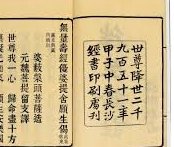 世尊降世二千
九百五十一年
甲子中春長沙
經書印刷房刊
無量壽經優婆提舍願生偈
婆藪槃頭菩薩造
元魏菩提留支譯
世尊我一心 歸命盡十方